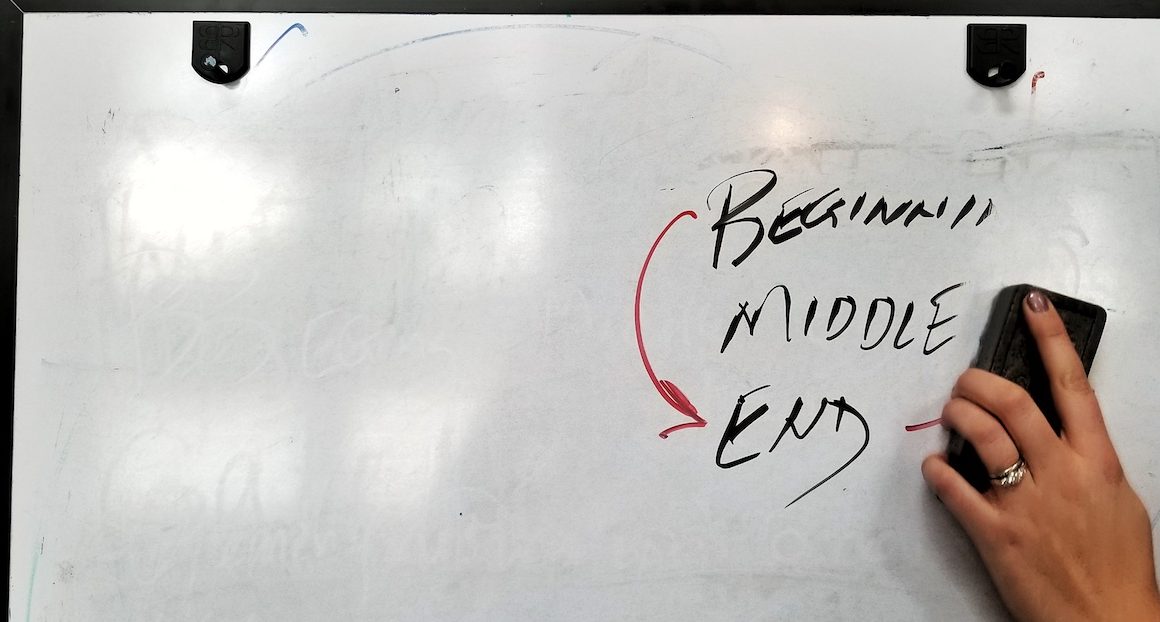 BEGINNIN
MIDDLE
END